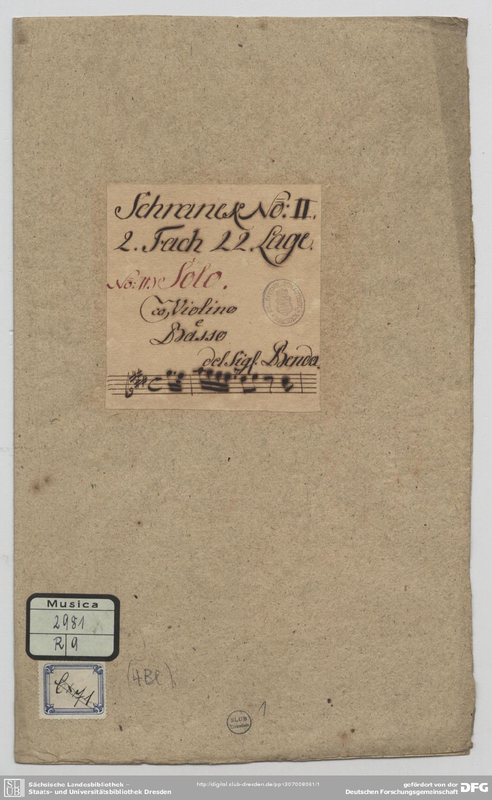 Schranck No: II.
2. Fach 22. Lage.
No: 11.) Solo.
co, Violino
e
Basso
del Sigl. Benda.
Musica
2981
R 9
SLUB
1
Sächsische Landesbibliothek -
Staats- und Universitätsbibliothek Dresden
http://digital.slub-dresden.de/
gefördert von der
Deutschen Forschungsgemeinschaft
DFG